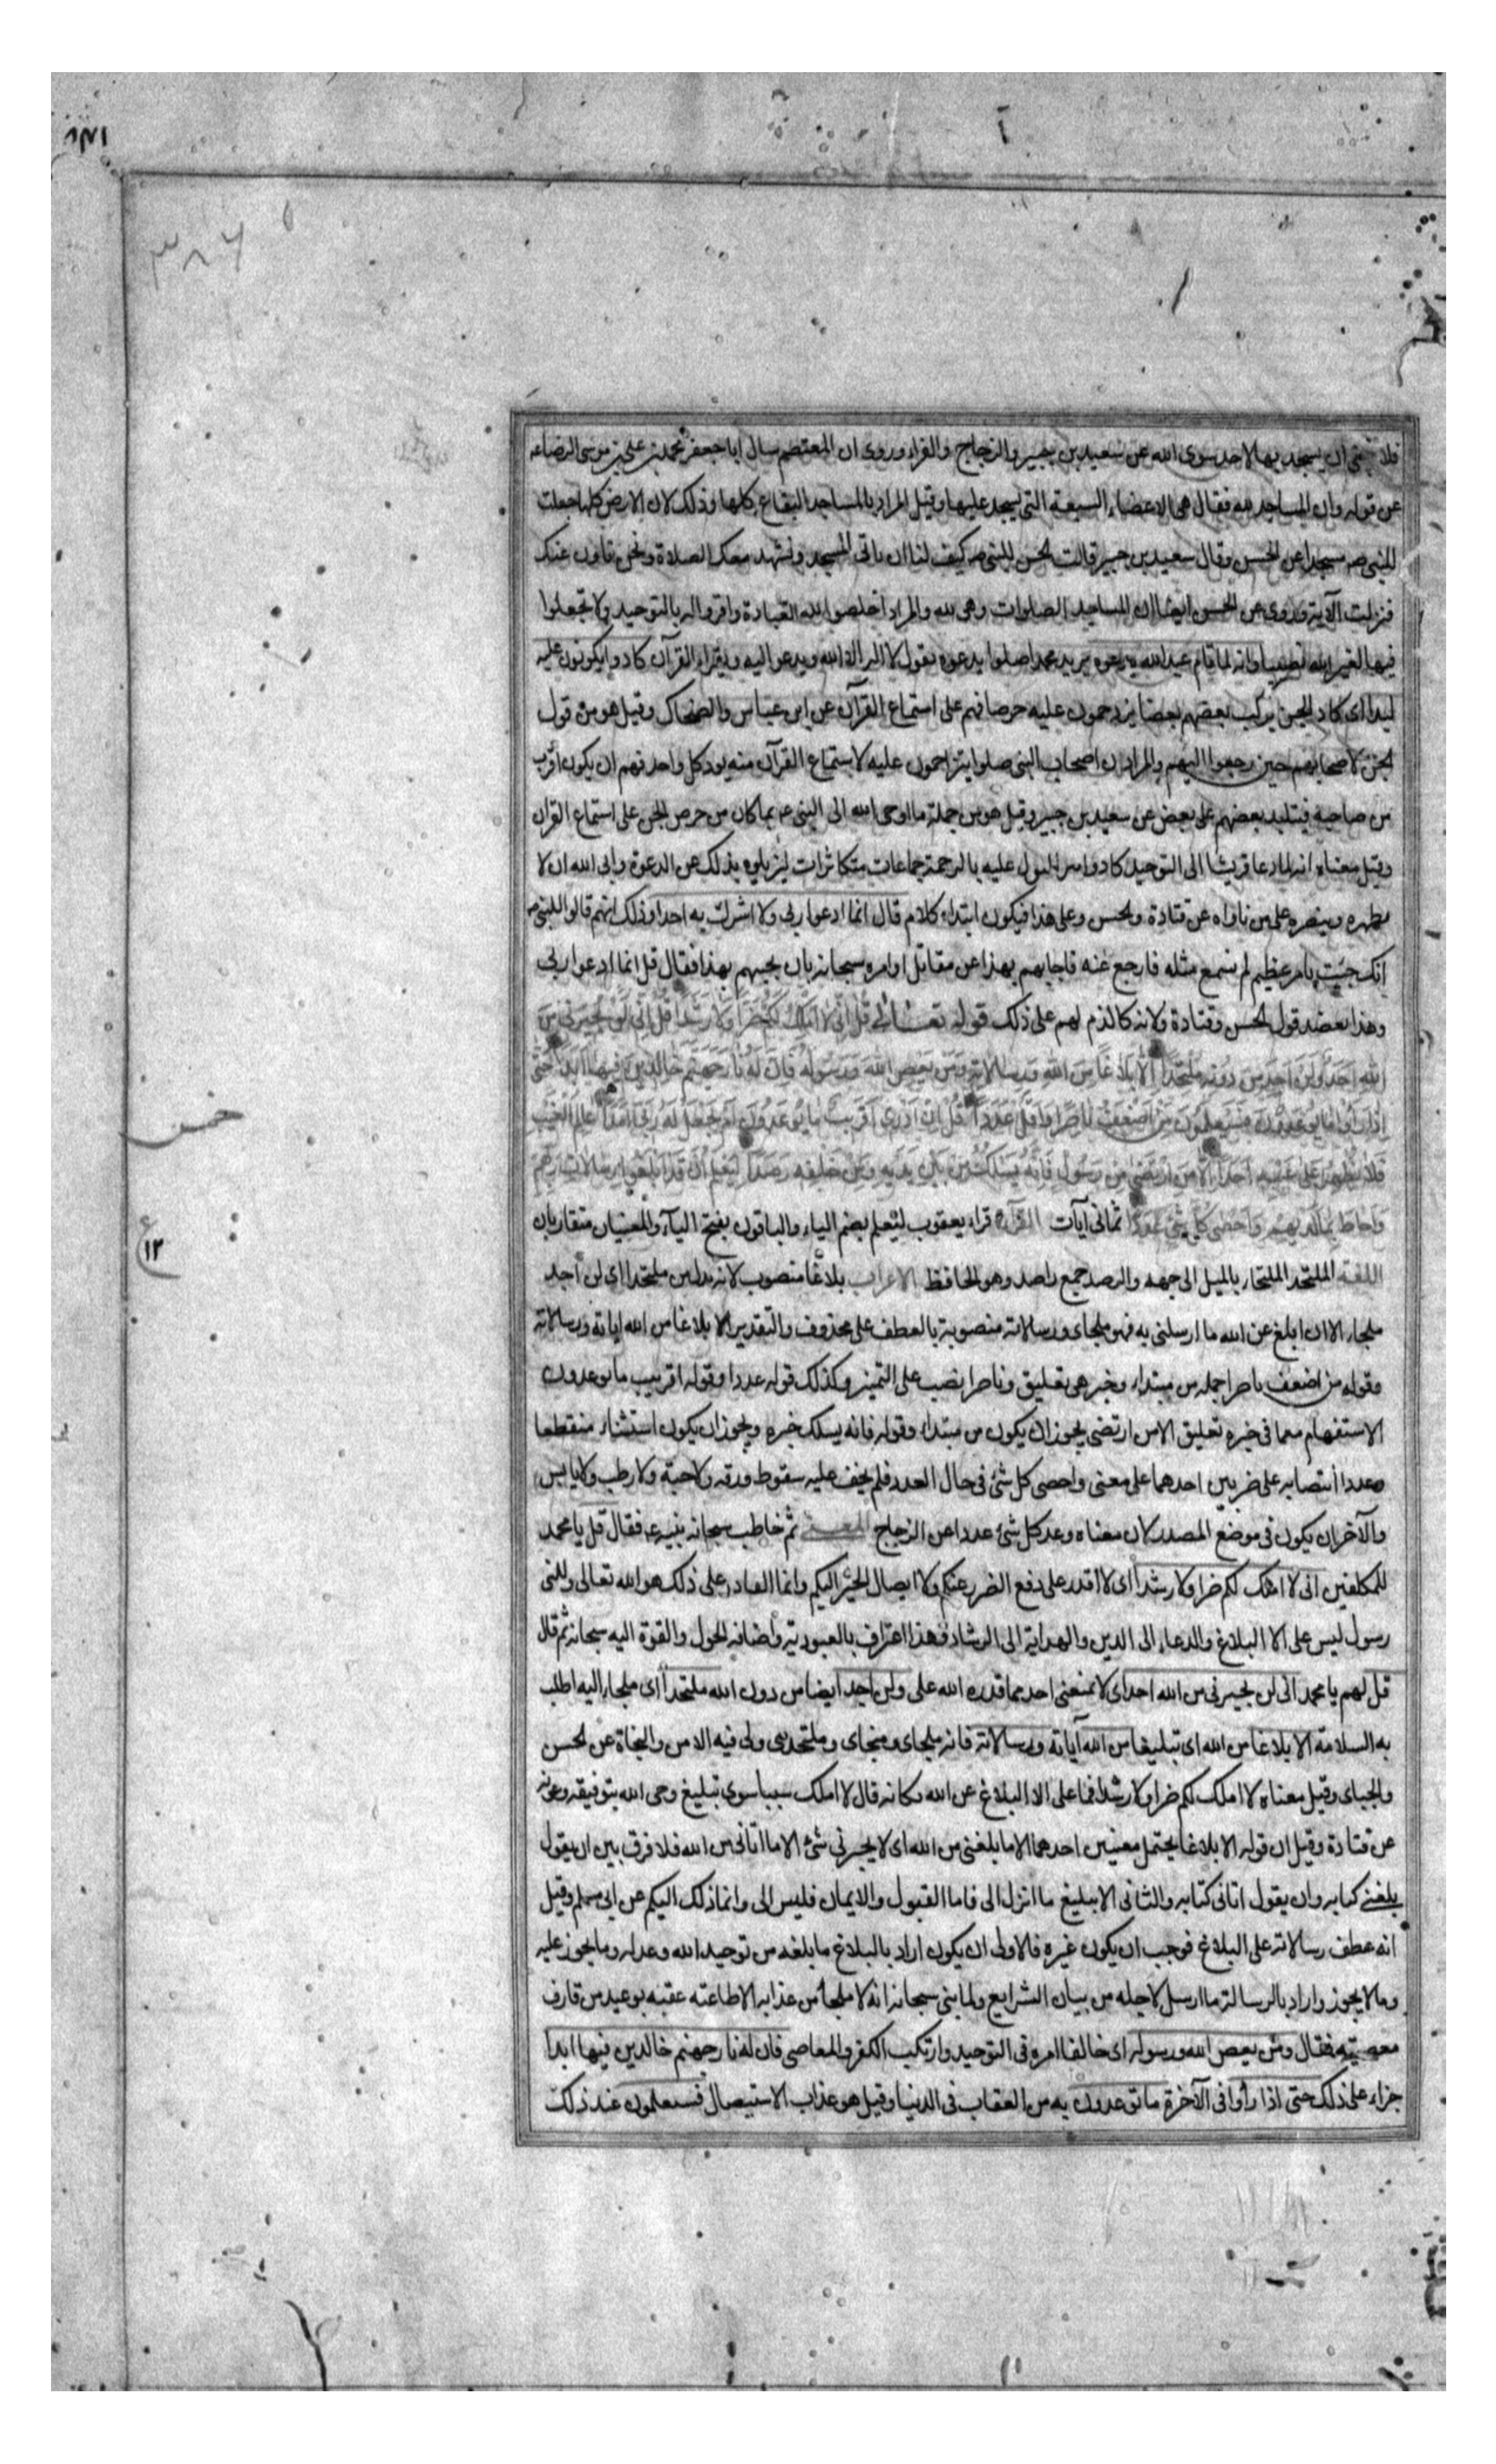 فلا ينبغى ان يسجد بها لاحد سوى الله عن سعيد بن جبير والزجاج والفراء وروى ان المعتصم سال ابا جعفر محمد بن على بن موسى الرضا ع
عن قوله وان المساجد لله فقال هى الاعضاء السبعة التى يسجد عليها وقيل المراد بالمساجد البقاع كلها وذلك لان الارض كلها جعلت
للنبى ص مسجدا عن الحسن وقال سعيد بن جبير قالت الجن للنبى ص كيف لنا ان ناتى المسجد ونشهد معك الصلاة ونحن ناؤن عنك
فنزلت الآية وروى عن الحسن ايضا ان المساجد الصلوات وهى لله والمراد اخلصوا لله العبادة واقروا له بالتوحيد ولا تجعلوا
فيها لغير الله نصيبا وانه لما قام عبد الله يدعوه يريد محمدا صلوا يدعوه بقول لا اله الا الله ويدعو اليه ويقراء القرآن كادوا يكونون عليه
لبدا اى كاد الجن يركب بعضهم بعضا يزدحمون عليه حرصا منهم على استماع القرآن عن ابن عباس والضحاك وقيل هو من قول
الجن لاصحابهم حين رجعوا اليهم والمراد ان اصحاب النبى صلوا يتزاحمون عليه لاستماع القرآن منه يود كل واحد منهم ان يكون اقرب
من صاحبه فيتلبد بعضهم على بعض عن سعيد بن جبير وقيل هو من جملة ما اوحى الله الى النبى ع بما كان من حرص الجن على استماع القران
وقيل معناه انه لما دعا قريشا الى التوحيد كادوا عليه بالزحمة جماعات متكاثرات ليزيلوه بذلك عن الدعوة وابى الله ان لا
يظهره وينصره على من ناواه عن قتادة والحسن وعلى هذا فيكون ابتداء كلام قال انما ادعوا ربى ولا اشرك به احدا وذلك انهم قالوا للنبى ص
انك جئت بامر عظيم لم يسمع مثله فارجع عنه فاجابهم بهذا عن مقاتل او امره سبحانه بان يجيبهم بهذا فقال قل انما ادعوا ربى
وهذا يعضد قول الحسن وقتادة ولانه كالذم لهم على ذلك قوله تعالى قل انى لا املك لكم ضرا ولا رشدا قل انى لن يجيرنى من
الله احد ولن اجد من دونه ملتحدا الا بلاغا من الله ورسالاته ومن يعص الله ورسوله فان له نار جهنم خالدين فيها ابدا حتى
اذا راوا ما يوعدون فسيعلمون من اضعف ناصرا واقل عددا قل ان ادرى اقريب ما توعدون ام يجعل له ربى امدا عالم الغيب
فلا يظهر على غيبه احدا الا من ارتضى من رسول فانه يسلك من بين يديه ومن خلفه رصدا ليعلم ان قد ابلغوا رسالات ربهم
واحاط بما لديهم واحصى كل شئ عددا ثمانى آيات القرآءة قراء يعقوب ليعلم بضم الياء والباقون بفتح الياء والمعنيان متقاربان
اللغة الملتحد الملتجا بالميل الى جهه والرصد جمع راصد وهو الحافظ الاعراب بلاغا منصوب لانه بدل من ملتحدا اى لن اجد
ملجاء الا ان ابلغ عن الله ما ارسلنى به فهو ملجاى ورسالاته منصوبة بالعطف على محذوف والتقدير الا بلاغا من الله اياته ورسالاته
وقوله من اضعف ناصرا جمله من مبتداء وخبر هى تعليق وناصرا نصب على التميز وكذلك قوله عددا وقوله اقريب ما توعدون
الاستفهام مع ما فى خبره تعليق الا من ارتضى يجوز ان يكون من مبتداء وقوله فانه يسلك خبره ويجوز ان يكون استثناء منقطعا
وعددا انتصابه على ضربين احدهما على معنى واحصى كل شئ فى حال العدد فلم يخف عليه سقوط ورقه ولا حبة ولا رطب ولا يابس
والآخر ان يكون فى موضع المصدر لان معناه وعد كل شئ عددا عن الزجاج المعنى ثم خاطب سبحانه نبيه ع فقال قل يا محمد
للمكلفين انى لا املك لكم ضرا ولا رشدا اى لا اقدر على دفع الضرر عنكم ولا ايصال الخير اليكم وانما القادر على ذلك هو الله تعالى ولكنى
رسول ليس على الا البلاغ والدعاء الى الدين والهداية الى الرشاد فهذا اعتراف بالعبودية واضافه الحول والقوة اليه سبحانه ثم قال
قل لهم يا محمد انى لن يجيرنى من الله احد اى لا يمنعنى احد مما قدره الله على ولن اجد ايضا من دون الله ملتحدا اى ملجاء اليه اطلب
به السلامة الا بلاغا من الله اى تبليغا من الله آياته ورسالاته فانه ملجاى ومنجاى وملتحدى ولى فيه الامن والنجاة عن الحسن
والجباى وقيل معناه لا املك لكم ضرا ولا رشدا فما على الا البلاغ عن الله وكانه قال لا املك سببا سوى تبليغ وحى الله بتوفيقه وعونه
عن قتادة وقيل ان قوله الا بلاغا يحتمل معنيين احدهما الا ما بلغنى من الله اى لا يجيرنى شئ الا ما اتانى من الله فلا فرق بين ان يقول
بلغنى كتابه وان يقول اتانى كتابه والثانى الا تبليغ ما انزل الى فاما القبول والايمان فليس الى وانما ذلك اليكم عن ابى مسلم وقيل
انه عطف رسالاته على البلاغ فوجب ان يكون غيره فالاولى ان يكون اراد بالبلاغ ما بلغه من توحيد الله وعدله وما يجوز عليه
وما لا يجوز واراد بالرسالة ما ارسل لاجله من بيان الشرايع ولما بنى سبحانه انه لا ملجأ من عذابه الا طاعته عقبه بوعيد من قارف
معصيته فقال ومن يعص الله ورسوله اى خالف امره فى التوحيد وارتكب الكفر والمعاصى فان له نار جهنم خالدين فيها ابدا
جزاء على ذلك حتى اذا رأوا فى الآخرة ما توعدون به من العقاب فى الدنيا وقيل هو عذاب الاستيصال فسيعلمون عند ذلك
خمس
١٢